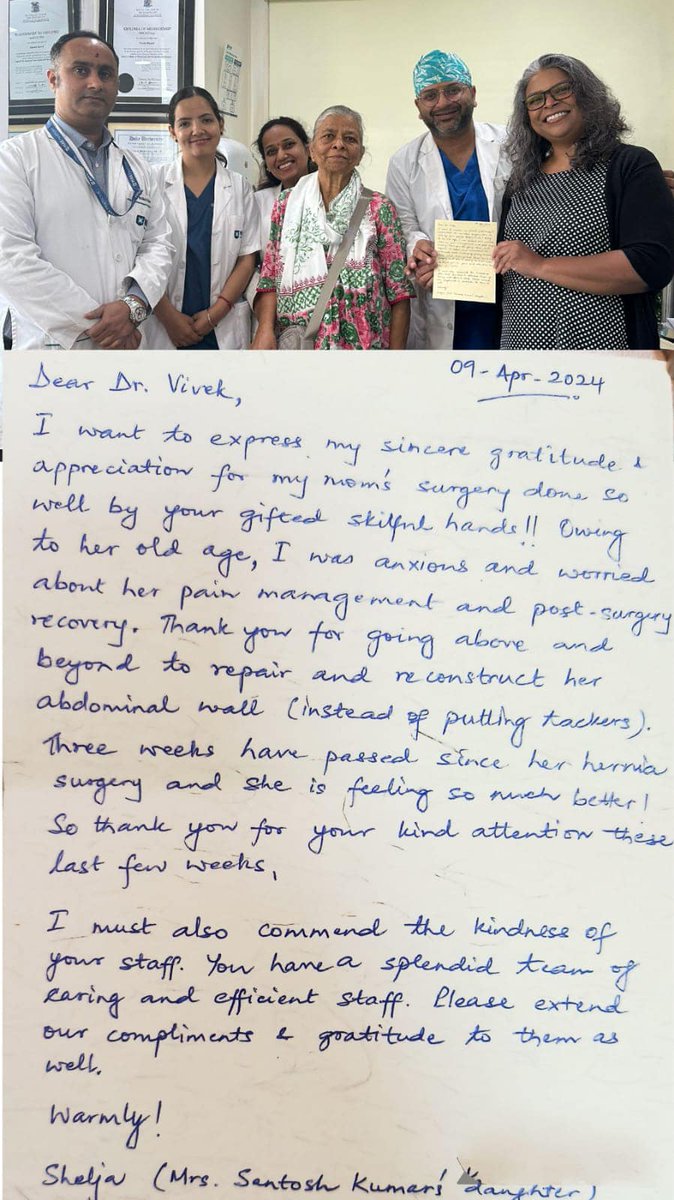 Dear Dr. Vivek,
09-Apr-2024
I want to express my sincere gratitude &
appreciation for my mom's surgery done so
well by your gifted skilful hands!! Owing
to her old age, I was anxious and worried
about her pain management and post-surgery
recovery. Thank you for going above and
beyond to repair and reconstruct her
abdominal wall (instead of putting tackers).
Three weeks have passed since her hernia
surgery and she is feeling so much better!
So thank you for your kind attention these
last few weeks,
I must also commend the kindness of
your staff. You have a splendid team of
caring and efficient staff. Please extend
our compliments & gratitude to them as
well.
Warmly!
Shelja (Mrs. Santosh Kumar's daughter)